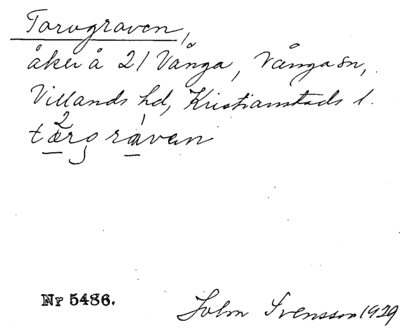 Torvgraven,
åker å 21 Vånga, Vånga sn,
Villands hd, Kristianstads l.
Nr 5486.
John Svensson 1929